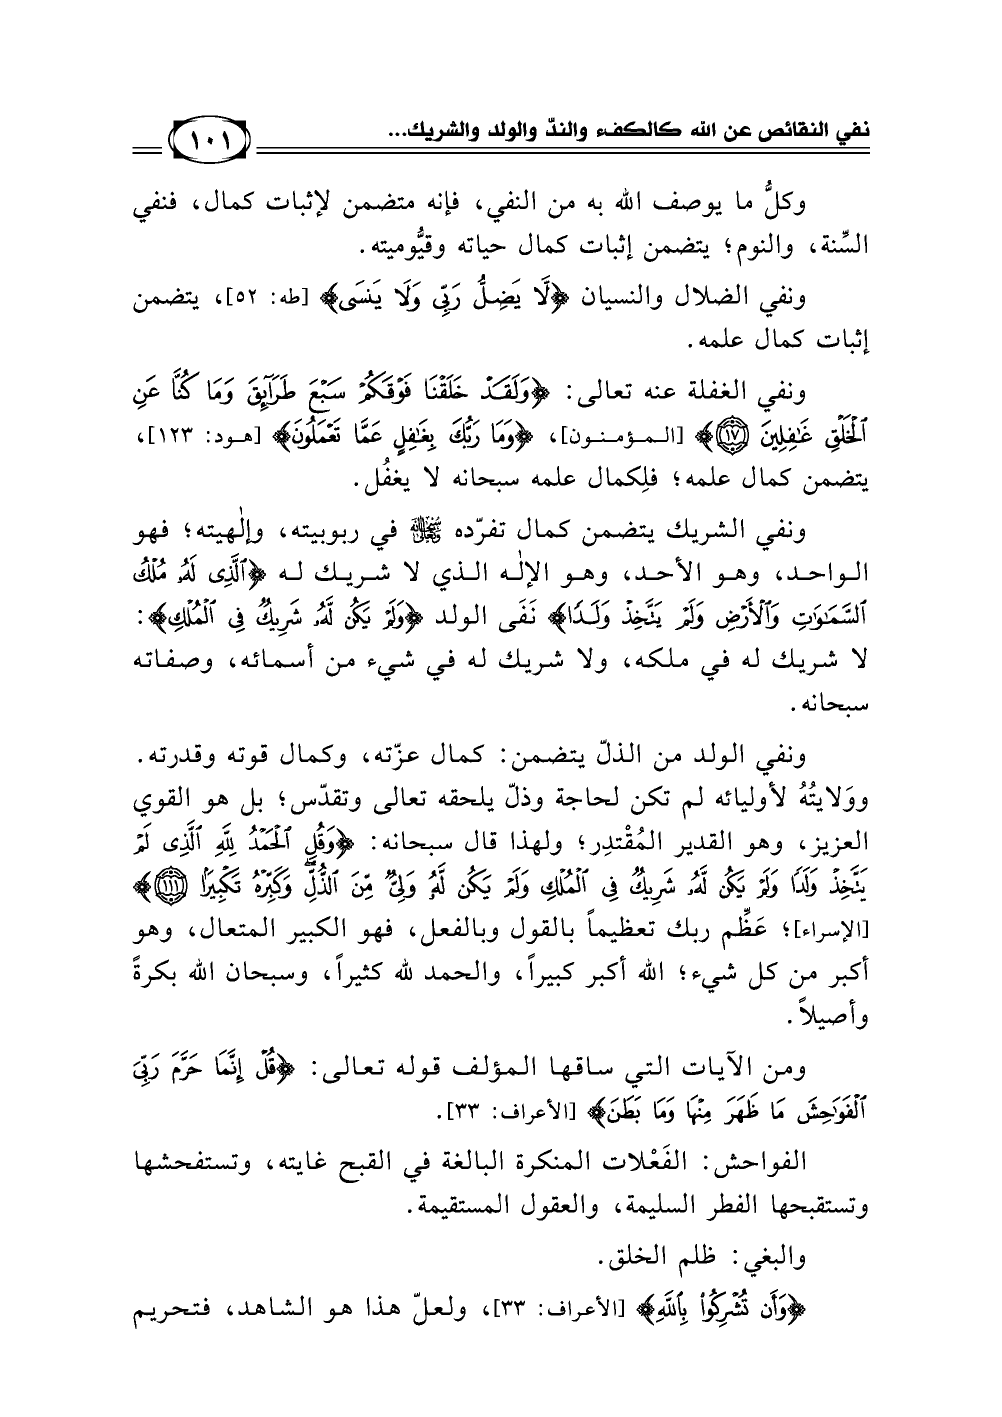 نفي النقائص عن الله كالكفء والندّ والولد والشريك...
١٠١
وكلُّ ما يوصف الله به من النفي، فإنه متضمن لإثبات كمال، فنفي
السِّنة، والنوم؛ يتضمن إثبات كمال حياته وقيُّوميته.
ونفي الضلال والنسيان ﴿لَّا يَضِلُّ رَبِّى وَلَا يَنسَى﴾ [طه: ٥٢]، يتضمن
إثبات كمال علمه.
ونفي الغفلة عنه تعالى: ﴿وَلَقَدْ خَلَقْنَا فَوْقَكُمْ سَبْعَ طَرَآئِقَ وَمَا كُنَّا عَنِ
ٱلْخَلْقِ غَٰفِلِينَ ﴿١٧﴾﴾ [المؤمنون]، ﴿وَمَا رَبُّكَ بِغَٰفِلٍ عَمَّا تَعْمَلُونَ﴾ [هود: ١٢٣]،
يتضمن كمال علمه؛ فلِكمال علمه سبحانه لا يغفُل.
ونفي الشريك يتضمن كمال تفرّده ﷻ في ربوبيته، وإلٰهيته؛ فهو
الواحد، وهو الأحد، وهو الإلٰه الذي لا شريك له ﴿ٱلَّذِى لَهُۥ مُلْكُ
ٱلسَّمَٰوَٰتِ وَٱلْأَرْضِ وَلَمْ يَتَّخِذْ وَلَدًا﴾ نَفَى الولد ﴿وَلَمْ يَكُن لَّهُۥ شَرِيكٌ فِى ٱلْمُلْكِ﴾:
لا شريك له في ملكه، ولا شريك له في شيء من أسمائه، وصفاته
سبحانه.
ونفي الولد من الذلّ يتضمن: كمال عزّته، وكمال قوته وقدرته.
ووَلايتُهُ لأوليائه لم تكن لحاجة وذلّ يلحقه تعالى وتقدّس؛ بل هو القوي
العزيز، وهو القدير المُقْتدِر؛ ولهذا قال سبحانه: ﴿وَقُلِ ٱلْحَمْدُ لِلَّهِ ٱلَّذِى لَمْ
يَتَّخِذْ وَلَدًا وَلَمْ يَكُن لَّهُۥ شَرِيكٌ فِى ٱلْمُلْكِ وَلَمْ يَكُن لَّهُۥ وَلِىٌّ مِّنَ ٱلذُّلِّ ۖ وَكَبِّرْهُ تَكْبِيرًۢا ﴿١١١﴾﴾
[الإسراء]؛ عَظِّم ربك تعظيماً بالقول وبالفعل، فهو الكبير المتعال، وهو
أكبر من كل شيء؛ الله أكبر كبيراً، والحمد لله كثيراً، وسبحان الله بكرةً
وأصيلاً.
ومن الآيات التي ساقها المؤلف قوله تعالى: ﴿قُلْ إِنَّمَا حَرَّمَ رَبِّىَ
ٱلْفَوَٰحِشَ مَا ظَهَرَ مِنْهَا وَمَا بَطَنَ﴾ [الأعراف: ٣٣].
الفواحش: الفَعْلات المنكرة البالغة في القبح غايته، وتستفحشها
وتستقبحها الفطر السليمة، والعقول المستقيمة.
والبغي: ظلم الخلق.
﴿وَأَن تُشْرِكُوا۟ بِٱللَّهِ﴾ [الأعراف: ٣٣]، ولعلّ هذا هو الشاهد، فتحريم